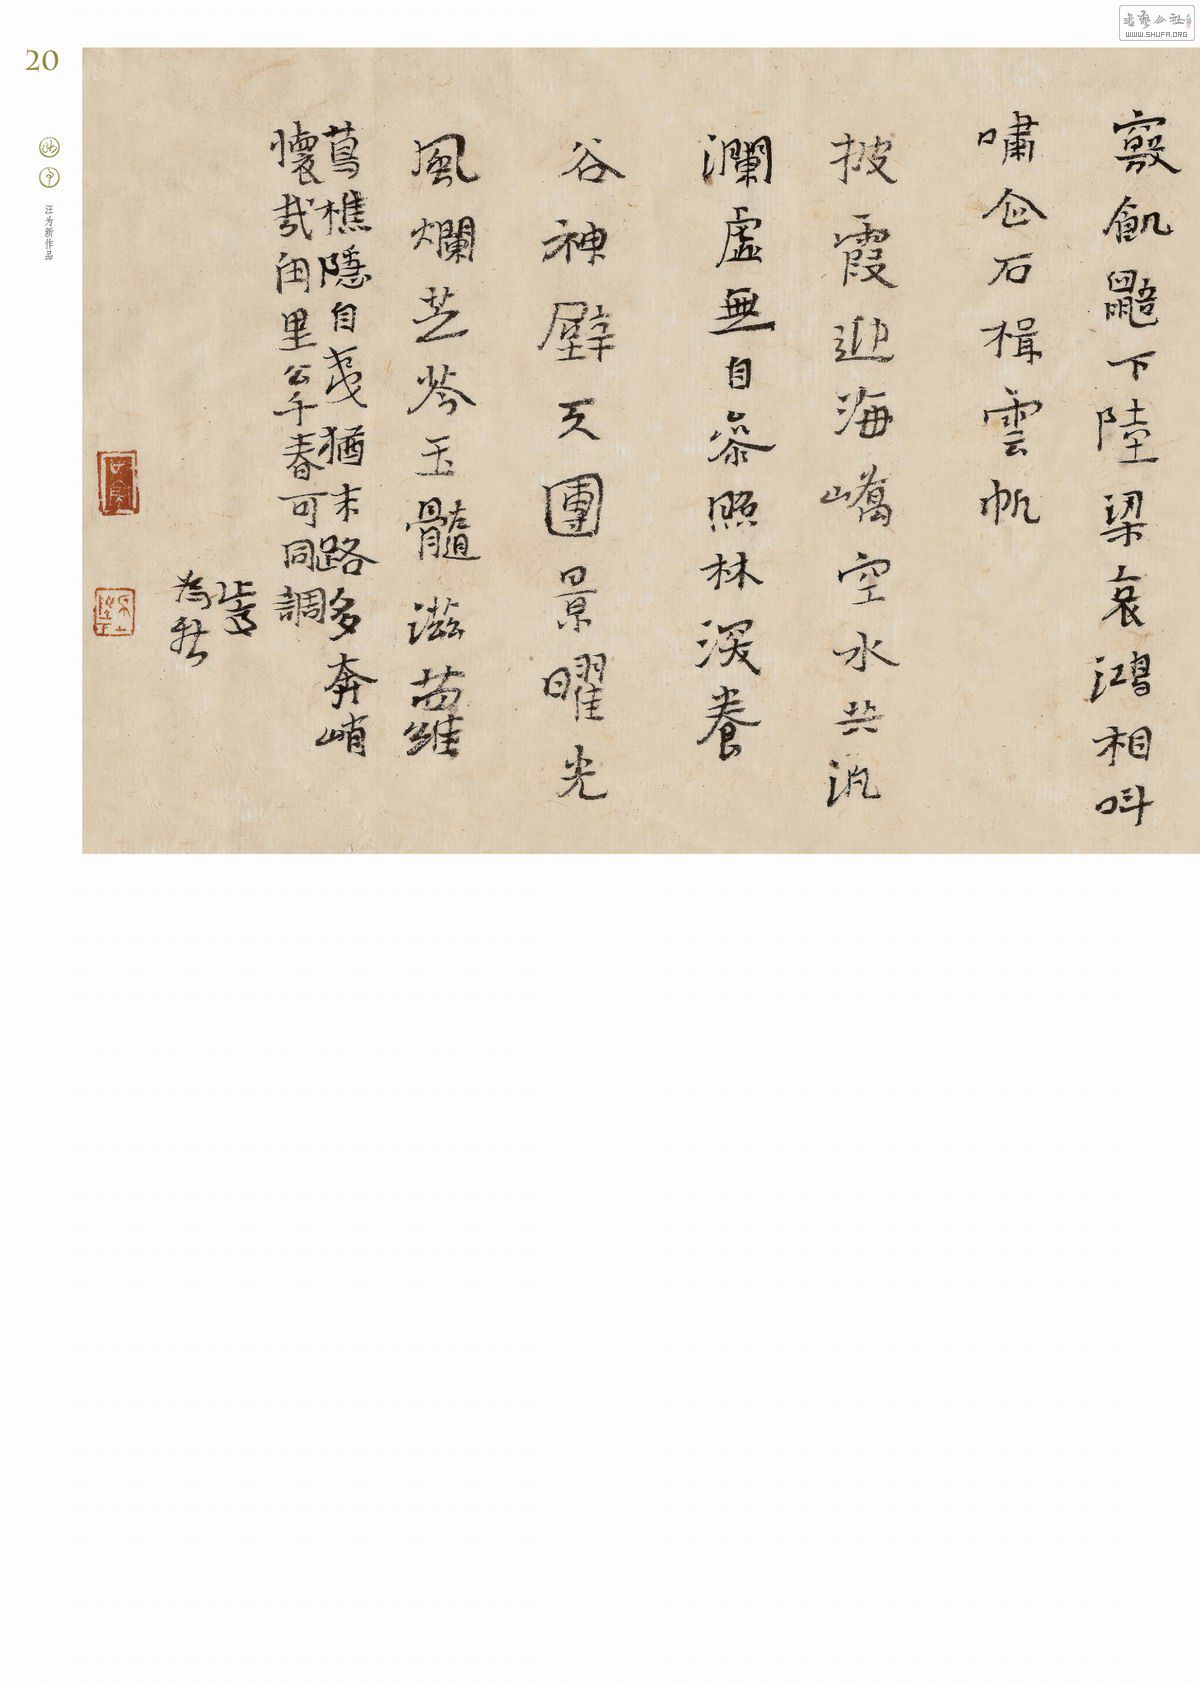 20
汪为新作品
書藝公社
WWW.SHUFA.ORG
飢鼯下陸梁哀鴻相叫
嘯企石楫雲帆
披霞迎海嶠空水共汎
瀾虛無自忝照林深養
谷神壁天團景曜光
風爛芝苓玉髓滋蘿
蔦樵隱自夷猶末路多奔峭
懷哉閭里公千春可同調
為新